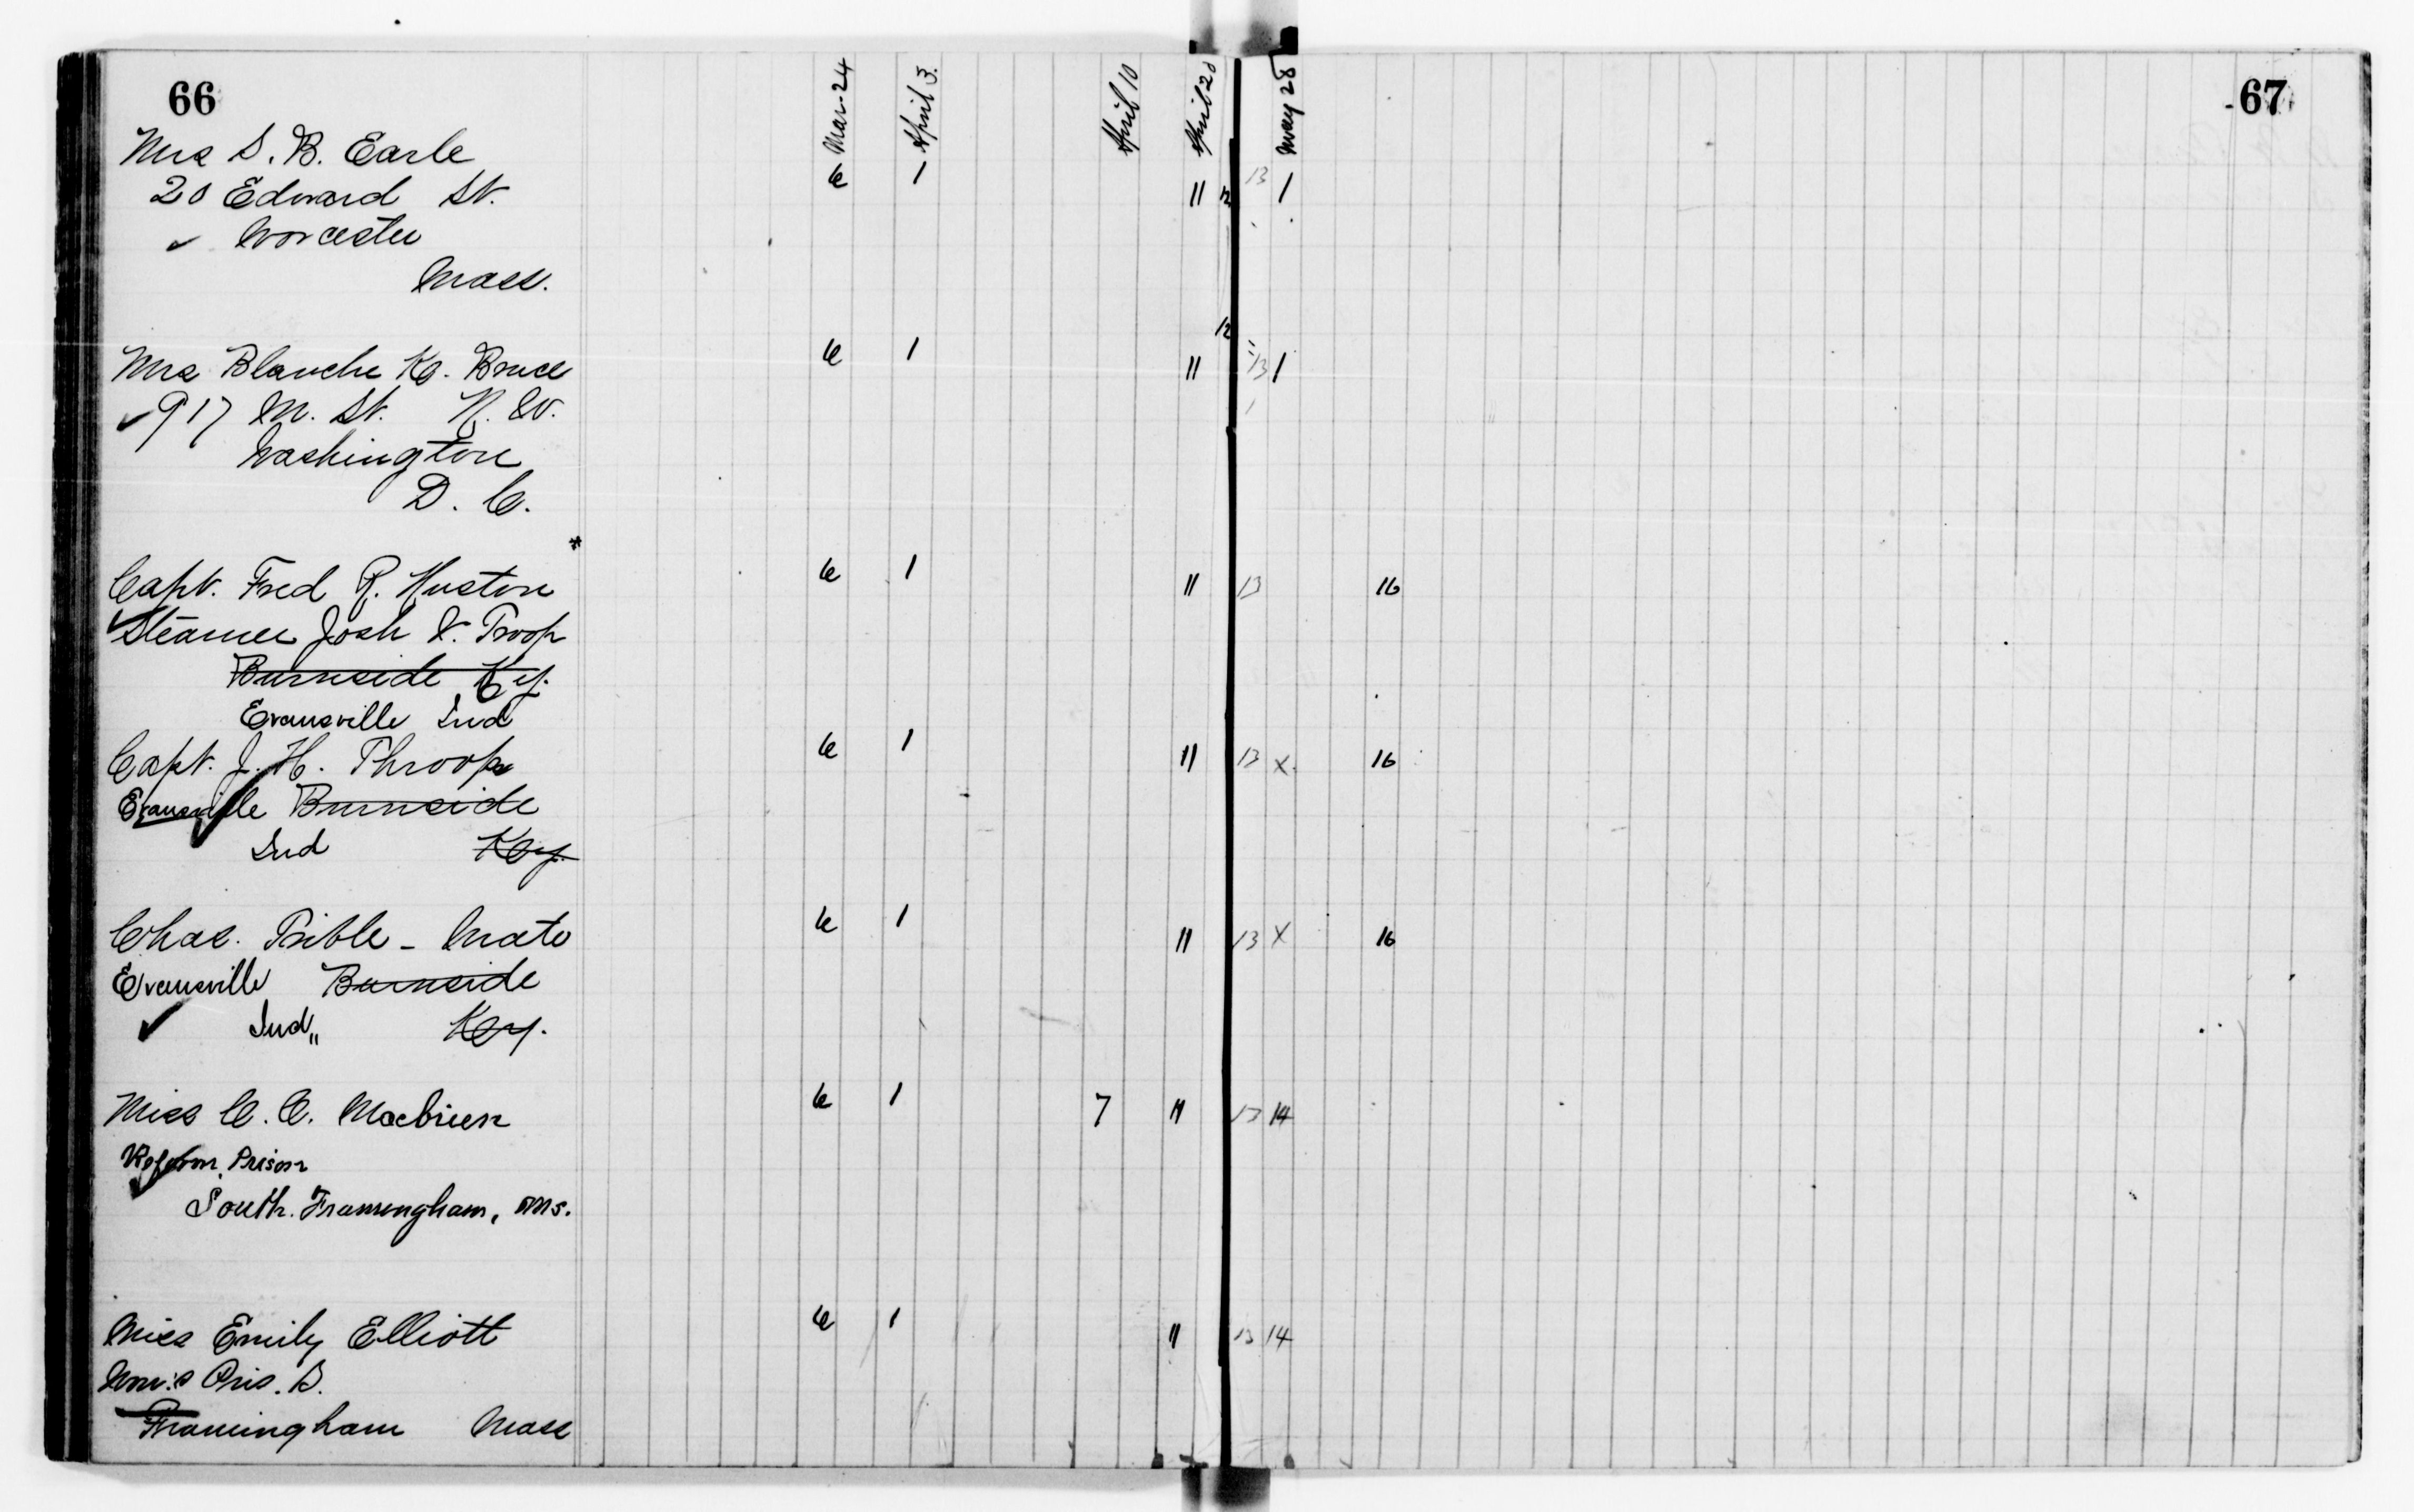 66
67
Mar-24
April 3.
April 10
April 20
May 28
Mrs S. B. Earle
6 1 11 12 13 1
20 Edward St.
Worcester
Mass.
12
Mrs Blanche K. Bruce
6 1 11 13 1
917 M. St. N. W.
Washington
D. C.
*
Capt. Fred R. Huston
6 1 11 13 16
Steamer Josh V. Troop
Burnside Ky.
Evansville Ind
Capt. J. H. Throop
6 1 11 13 x 16
Evansville Burnside
Ind Ky.
Chas. Prible - Mate
6 1 11 13 x 16
Evansville Burnside
Ind,, Ky.
Miss C. C.
6 1 7 11 13 14
Reform Prison
South. Framingham, Ms.
Miss Emily Elliott
6 1 11 13 14
Wom:s Pris. S.
Framingham Mass